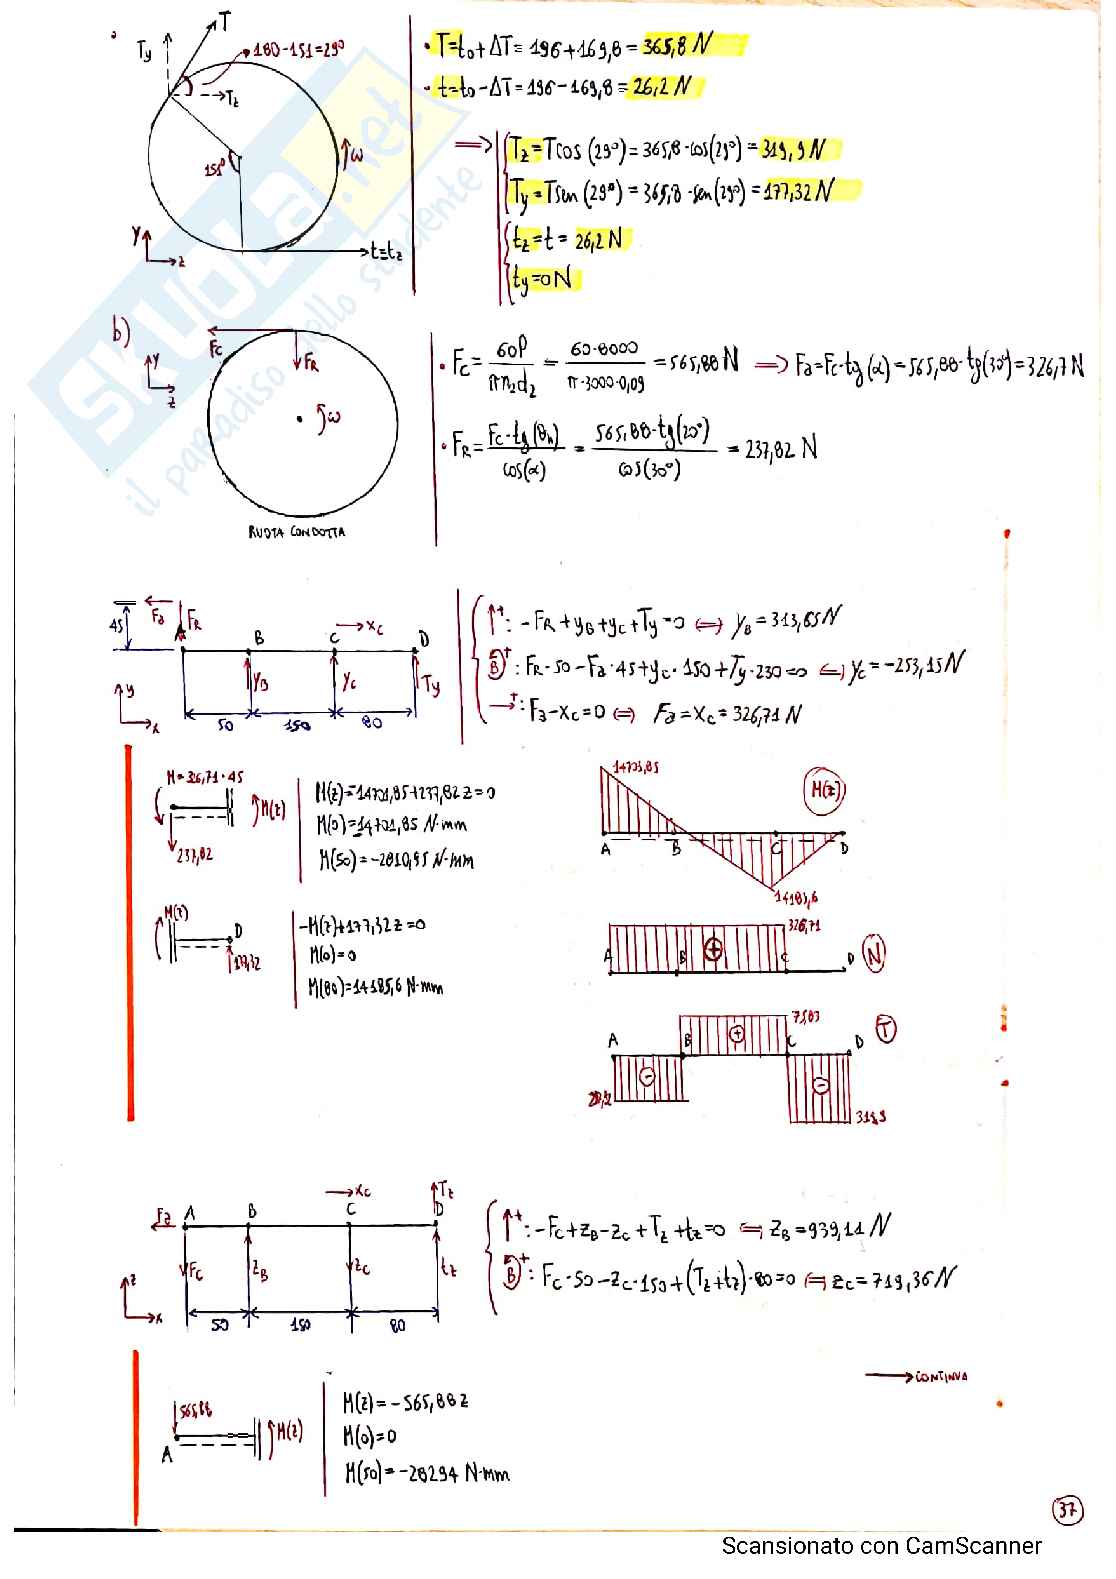 T
Ty
180-151=29°
→Tz
151°
ω
Y
z
t=tz
• T=to+ΔT=196+169,8=365,8 N
• t=to-ΔT=196-169,8=26,2 N
=> Tz=Tcos(29°)=365,8·cos(29°)=319,9 N
Ty=Tsen(29°)=365,8·sen(29°)=177,32 N
tz=t=26,2 N
ty=0 N
SKUOLA.net
il paradiso dello studente
b)
Y
z
Fc
FR
ω
RUOTA CONDOTTA
• Fc = 60P / πn2d2 = 60·8000 / π·3000·0,09 = 565,88 N => Fa=Fc·tg(α)=565,88·tg(30°)=326,7 N
• FR = Fc·tg(θn) / cos(α) = 565,88·tg(20°) / cos(30°) = 237,82 N
45
Fa
FR
A
B
C
→xc
D
YB
Yc
Ty
y
x
50
150
80
↑+: -FR+yB+yc+Ty=0 <=> yB=313,65N
B+: FR·50-Fa·45+yc·150+Ty·230=0 <=> yc=-253,15N
→+: Fa-xc=0 <=> Fa=xc=326,71 N
M=326,71·45
M(z)
237,82
M(z)=14701,85+237,82z=0
M(0)=14701,85 N·mm
M(50)=-2810,95 N·mm
14701,85
M(z)
A
B
C
D
14185,6
M(z)
D
177,32
-M(z)+177,32z=0
M(0)=0
M(80)=14185,6 N·mm
326,71
A
B
+
C
D
N
75,83
A
B
+
C
D
T
-
-
Fa
A
B
→xc
C
Tz
D
Fc
zB
zc
tz
z
x
50
150
80
↑+: -Fc+zB-zc+Tz+tz=0 <=> zB=939,11 N
B+: Fc·50-zc·150+(Tz+tz)·80=0 <=> zc=719,36N
→CONTINUA
565,88
A
M(z)
M(z)=-565,88z
M(0)=0
M(50)=-28294 N·mm
37
Scansionato con CamScanner